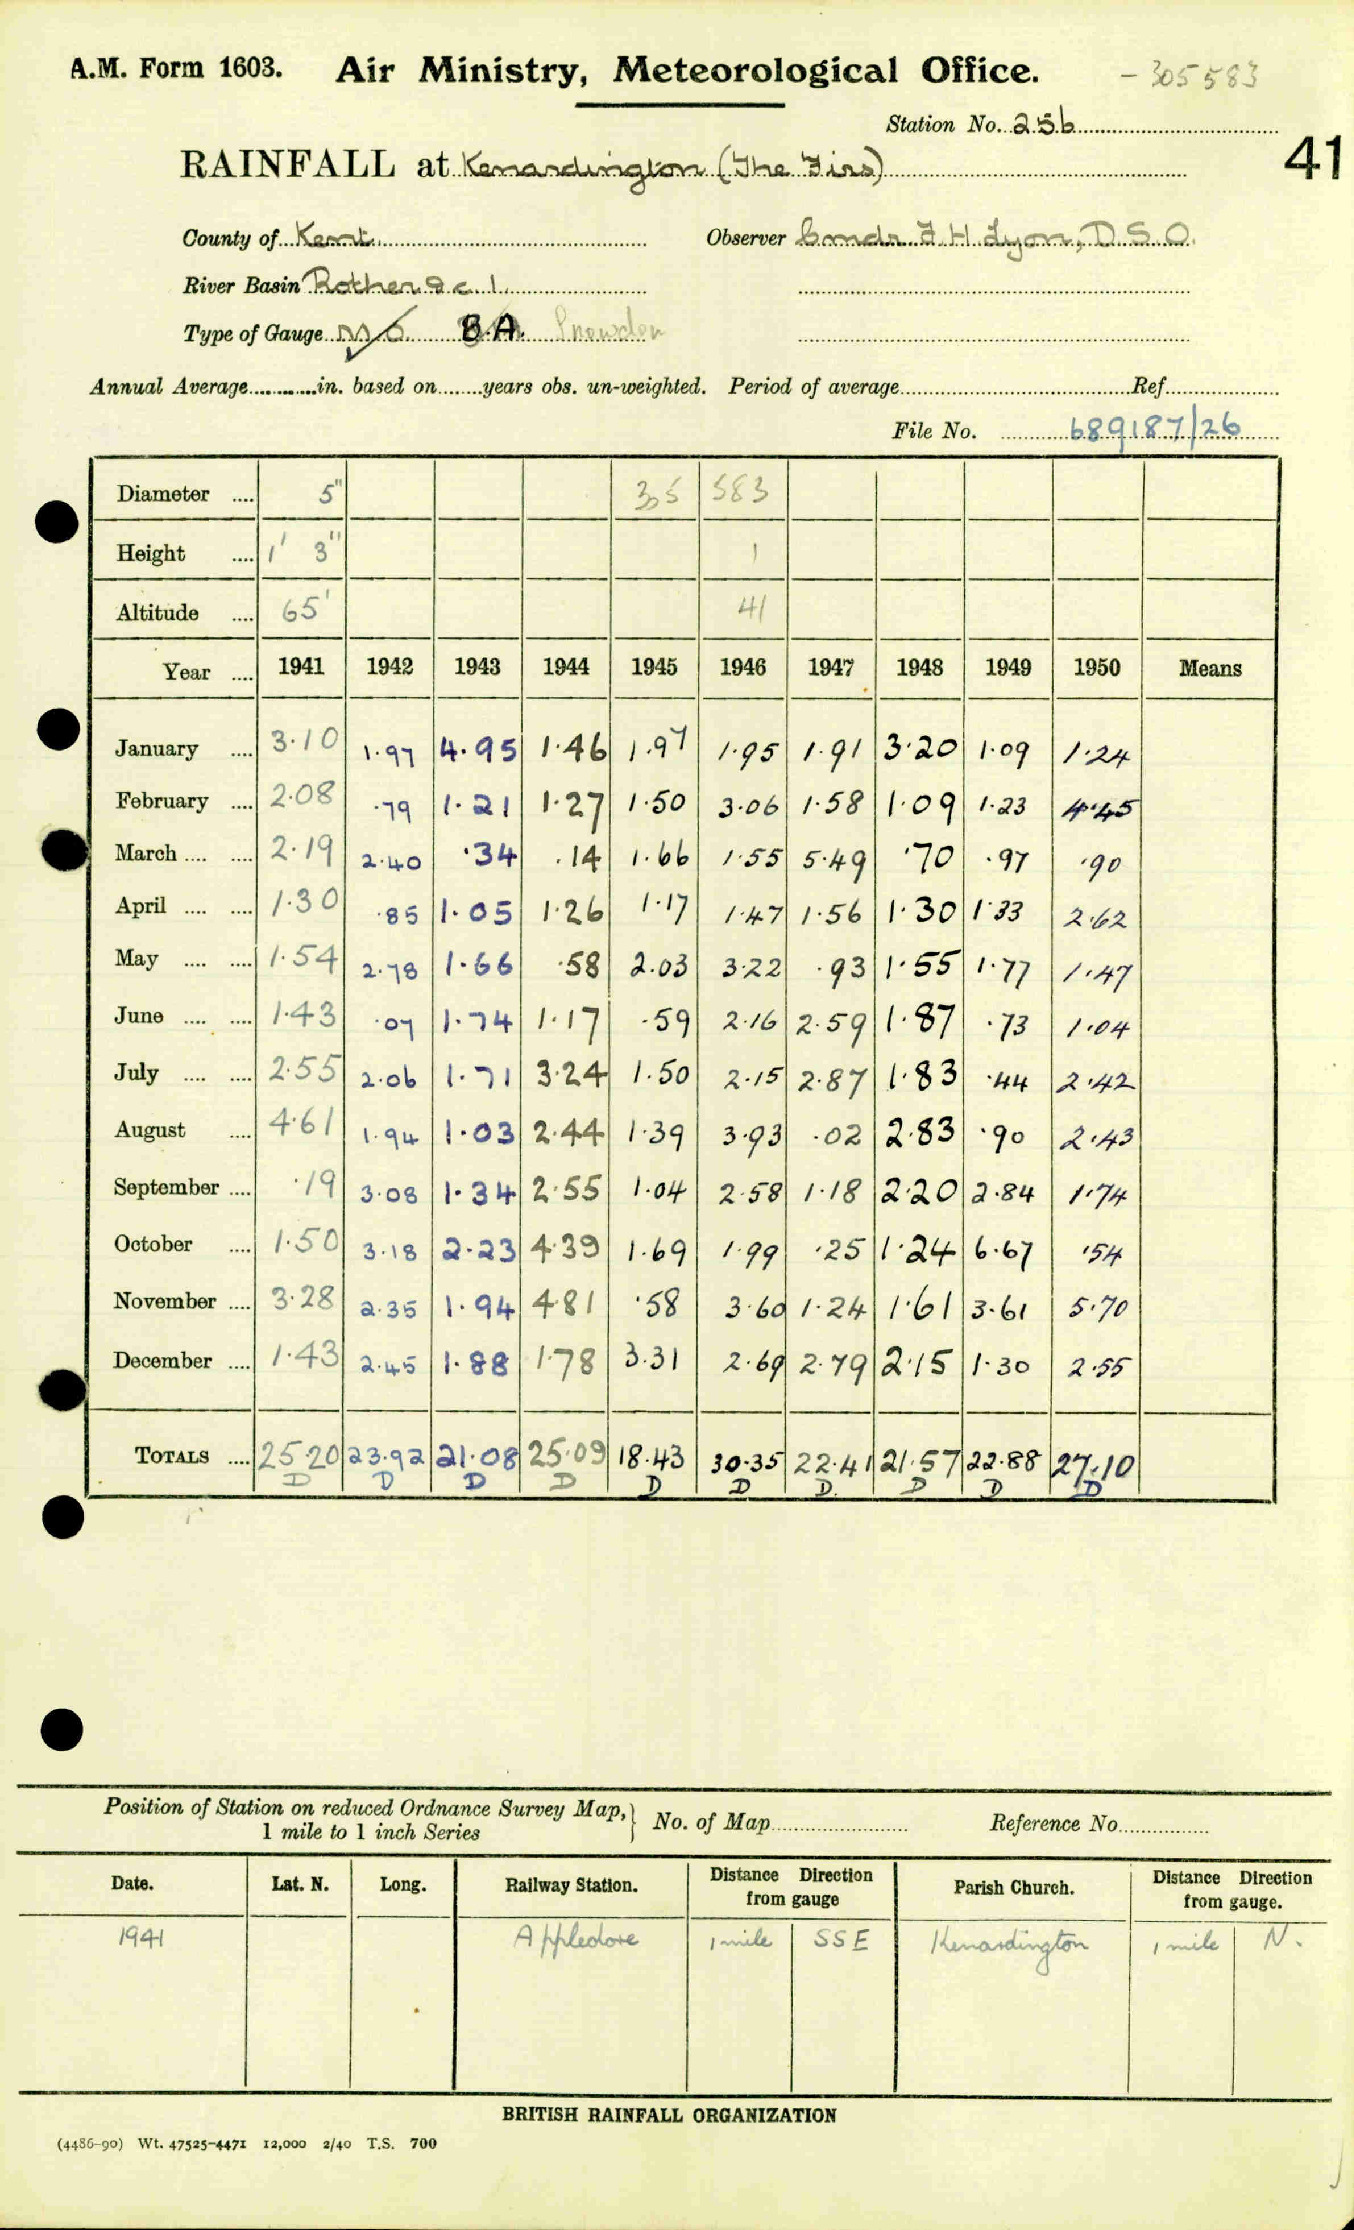 A.M. Form 1603. Air Ministry, Meteorological Office. - 305 583
Station No. 256
41
RAINFALL at Kenardington (The Firs)
County of Kent. Observer Cmdr F H Lyon, D.S.O.
River Basin Rother &c. 1.
Type of Gauge M O 8.A. Snowdon
Annual Average............in. based on.......years obs. un-weighted. Period of average.......... Ref..........
File No. 689187/26
Diameter .... 5" 305 583
Height .... 1' 3" 1
Altitude .... 65' 41
Year .... 1941 1942 1943 1944 1945 1946 1947 1948 1949 1950 Means
January .... 3.10 1.97 4.95 1.46 1.97 1.95 1.91 3.20 1.09 1.24
February .... 2.08 .79 1.21 1.27 1.50 3.06 1.58 1.09 1.23 4.45
March .... .... 2.19 2.40 .34 .14 1.66 1.55 5.49 .70 .97 .90
April .... .... 1.30 .85 1.05 1.26 1.17 1.47 1.56 1.30 1.33 2.62
May .... .... 1.54 2.78 1.66 .58 2.03 3.22 .93 1.55 1.77 1.47
June .... .... 1.43 .07 1.74 1.17 .59 2.16 2.59 1.87 .73 1.04
July .... .... 2.55 2.06 1.71 3.24 1.50 2.15 2.87 1.83 .44 2.42
August .... 4.61 1.94 1.03 2.44 1.39 3.93 .02 2.83 .90 2.43
September .... .19 3.08 1.34 2.55 1.04 2.58 1.18 2.20 2.84 1.74
October .... 1.50 3.18 2.23 4.39 1.69 1.99 .25 1.24 6.67 .54
November .... 3.28 2.35 1.94 4.81 .58 3.60 1.24 1.61 3.61 5.70
December .... 1.43 2.45 1.88 1.78 3.31 2.69 2.79 2.15 1.30 2.55
TOTALS .... 25.20 23.92 21.08 25.09 18.43 30.35 22.41 21.57 22.88 27.10
D D D D D D D. D D D
Position of Station on reduced Ordnance Survey Map, } No. of Map.......... Reference No..........
1 mile to 1 inch Series
Date. Lat. N. Long. Railway Station. Distance Direction from gauge Parish Church. Distance Direction from gauge.
1941 Appledore 1 mile SSE Kenardington 1 mile N.
BRITISH RAINFALL ORGANIZATION
(4486-90) Wt. 47525-4471 12,000 2/40 T.S. 700